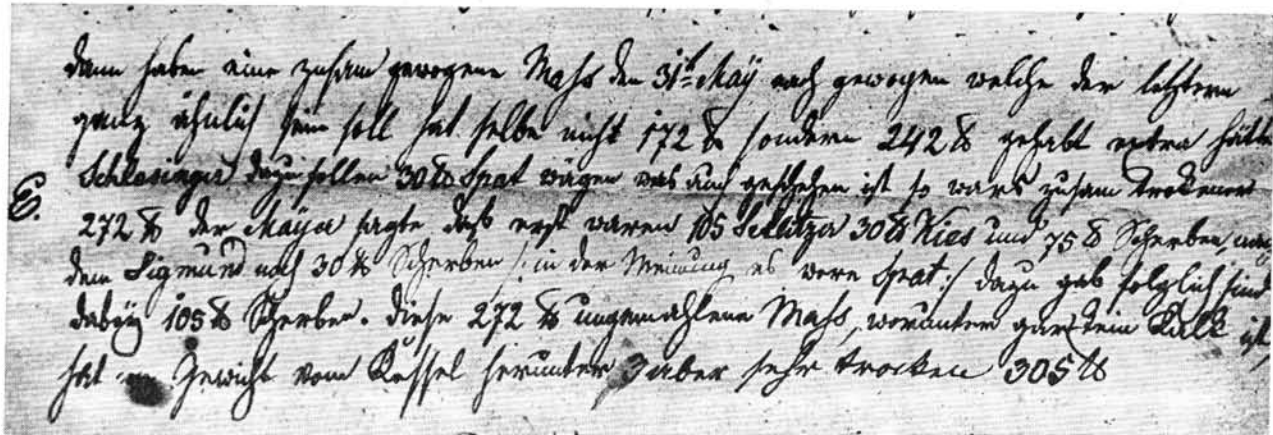 dann haben eine zusam gewogene Mass den 31t May nach gewogen welche der letztern
ganz ähnlich sein soll hat selbe nicht 172 ℔ sondern 242 ℔ gehabt extra hätte
Schlesinger dazu sollen 30 ℔ Spat wägen was auch geschehen ist so wars zusam trokener
E.
272 ℔ der Mayer sagte dass erst waren 105 Sedlitzer 30 ℔ Kies und 75 ℔ Scherben,
dem Sigmund noch 30 ℔ Scherben /: in der Meinung es were Spat :/ dazu gab folglich sind
dabey 105 ℔ Scherben. diese 272 ℔ ungemahlene Mass, worunter gar kein Kalk ist
hat Gewicht vom Kessel herunter aber sehr trocken 305 ℔